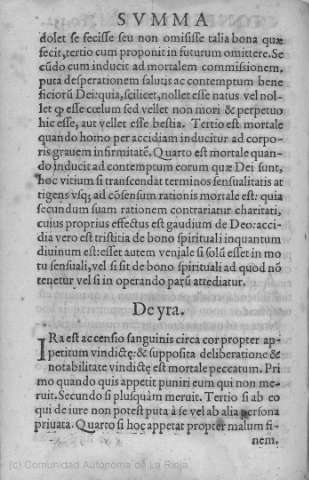 SVMMA
dolet se fecisse seu non omisisse talia bona quæ
fecit, tertio cum proponit in futurum omittere. Se
cũdo cum inducit ad mortalem commissionem,
puta desperationem salutis ac contemptum bene
ficiorũ Dei: quia, scilicet, nollet esse natus vel nol-
let ꝙ esse cœlum sed vellet non mori & perpetuo
hic esse, aut vellet esse bestia. Tertio est mortale
quando homo per accidiam inducitur ad corpo-
ris grauem infirmitatẽ. Quarto est mortale quan-
do inducit ad contemptum eorum quæ Dei sunt,
hoc vitium si transcendat terminos sensualitatis at
tigens vsq; ad cõsensum rationis mortale est: quia
secundum suam rationem contrariatur charitati,
cuius proprius effectus est gaudium de Deo: acci-
dia vero est tristitia de bono spirituali inquantum
diuinum est: esset autem veniale si solũ esset in mo
tu sensuali, vel si sit de bono spirituali ad quod nõ
tenetur vel si in operando parũ attediatur.
De yra.
IRa est accensio sanguinis circa cor propter ap-
petitum vindictę: & supposita deliberatione &
notabilitate vindictę est mortale peccatum. Pri
mo quando quis appetit puniri eum qui non me-
ruit. Secundo si plusquàm meruit. Tertio si ab eo
qui de iure non potest puta à se vel ab alia persona
priuata. Quarto si hoc appetat propter malum fi-
nem.
(c) Comunidad Autónoma de La Rioja